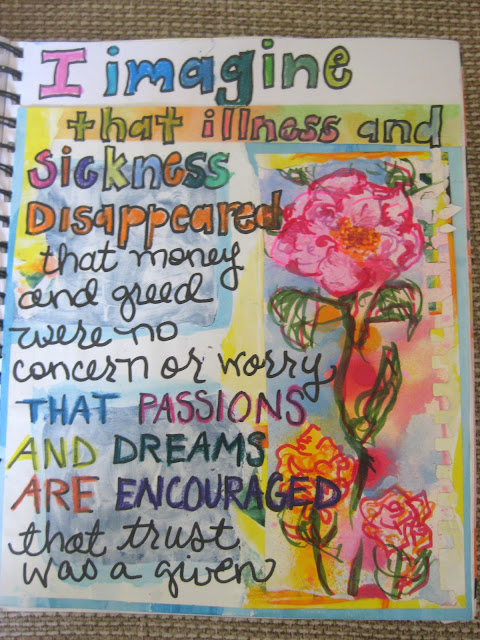 I imagine
that illness and
SickNess
DisappeareD
that money
and greed
were no
concern or worry
THAT PASSIONS
AND DREAMS
ARE ENCOURAGED
that trust
was a given